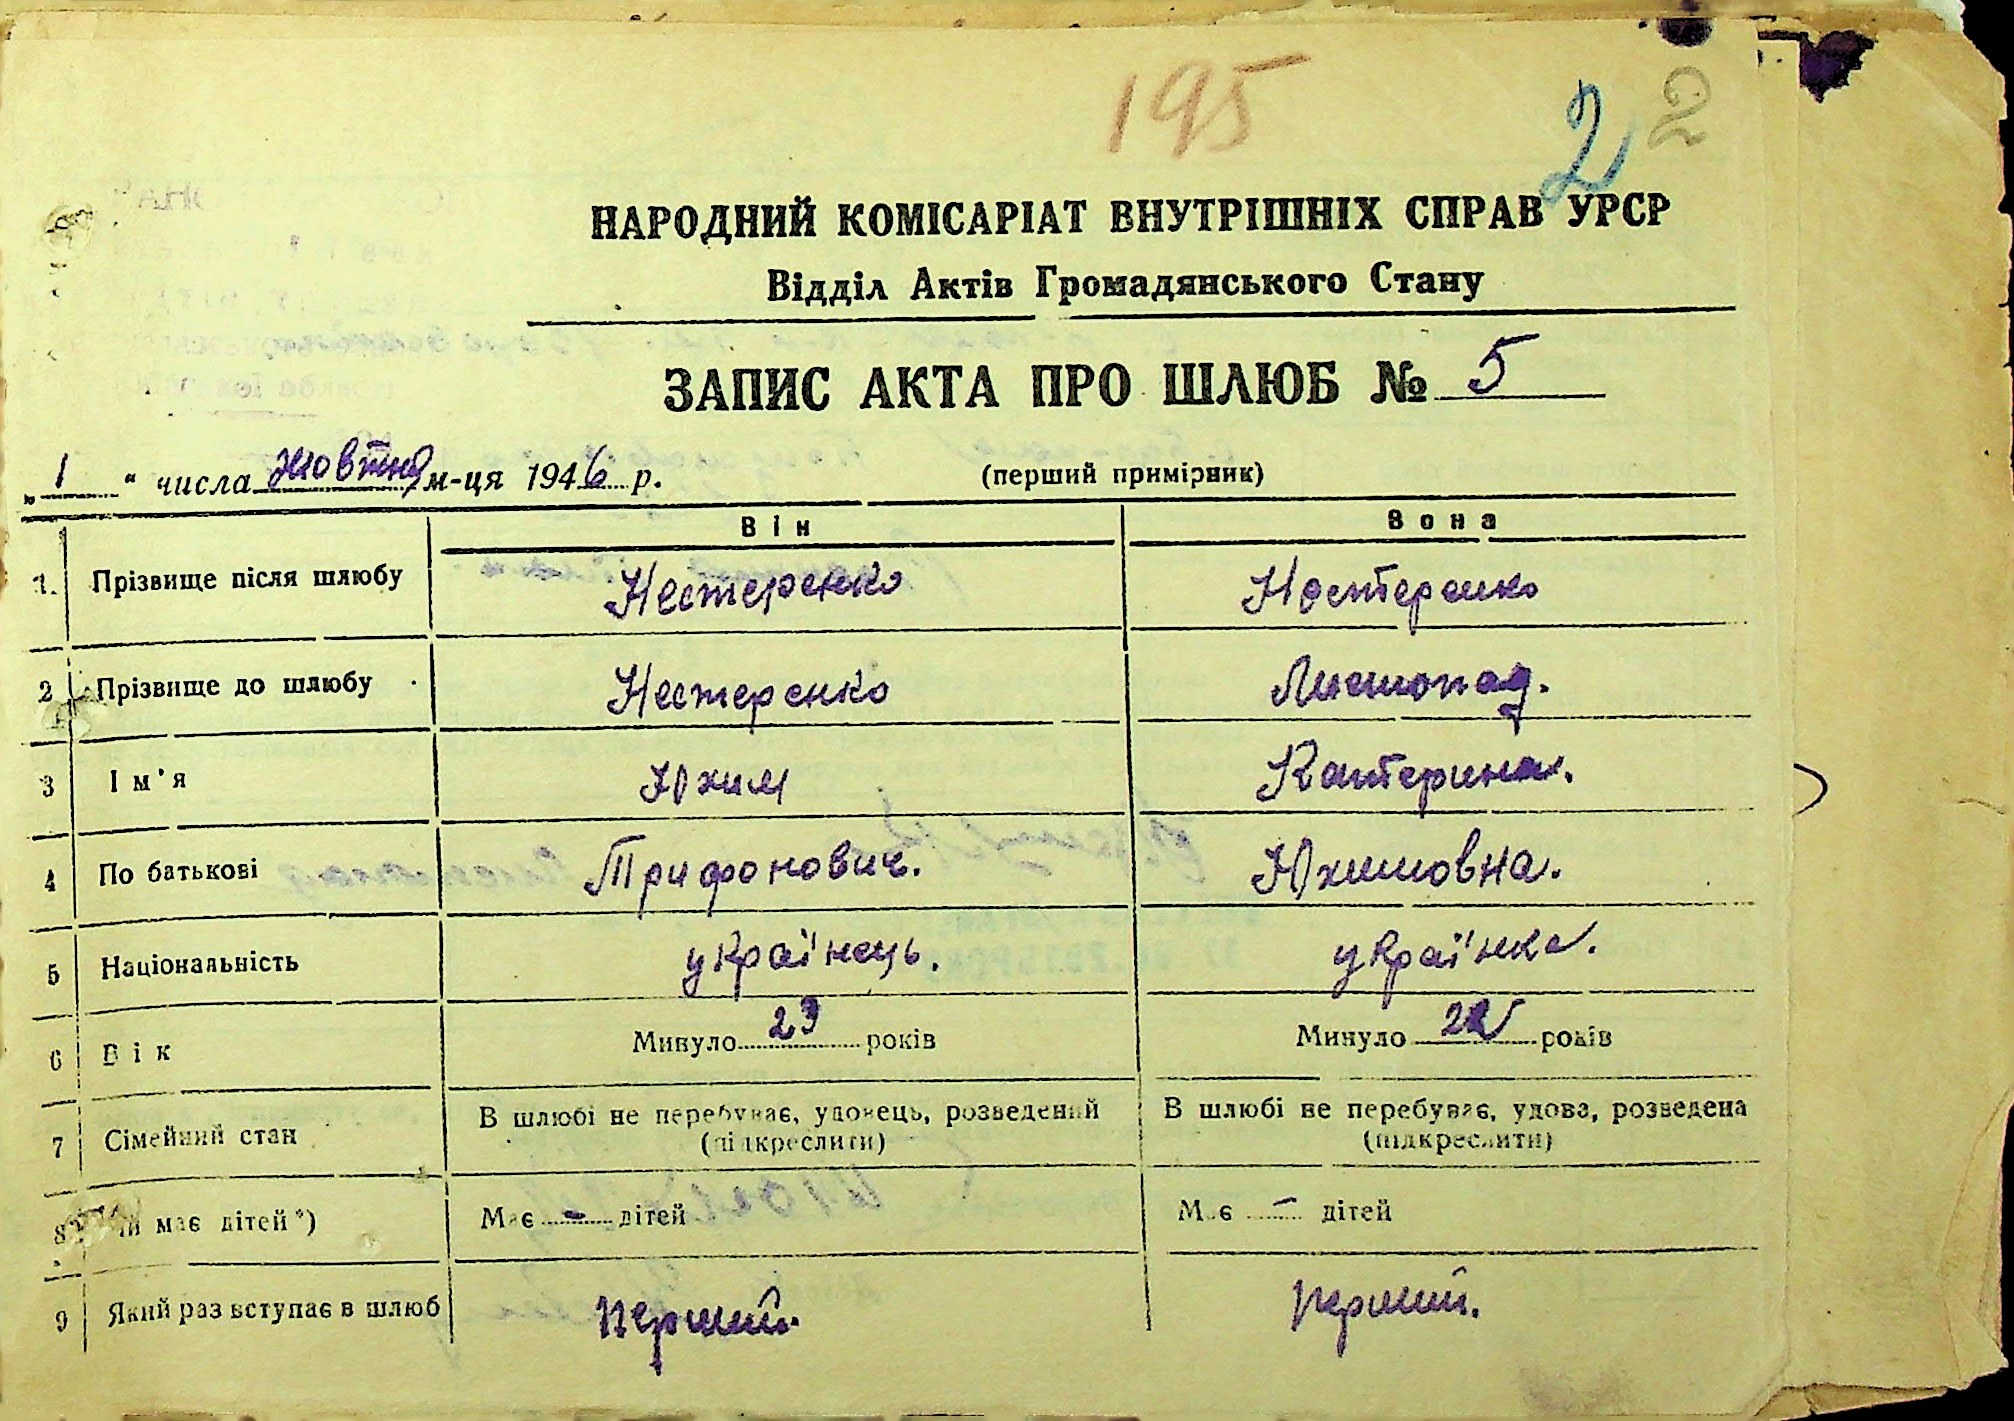 195
2
2
НАРОДНИЙ КОМІСАРІАТ ВНУТРІШНІХ СПРАВ УРСР
Відділ Актів Громадянського Стану
ЗАПИС АКТА ПРО ШЛЮБ № 5
„ 1 “ числа жовтня м-ця 1946 р. (перший примірник)
Він Вона
1. Прізвище після шлюбу Нестеренко Нестеренко
2 Прізвище до шлюбу Нестеренко Листопад.
3 Ім'я Юхим Катерина.
4 По батькові Трифонович. Юхимовна.
5 Національність українець. українка.
6 Вік Минуло 23 років Минуло років
7 Сімейний стан В шлюбі не перебуває, удовець, розведений В шлюбі не перебуває, удова, розведена
(підкреслити) (підкреслити)
8 Чи має дітей*) Має - дітей Має - дітей
9 Який раз вступає в шлюб перший. перший.